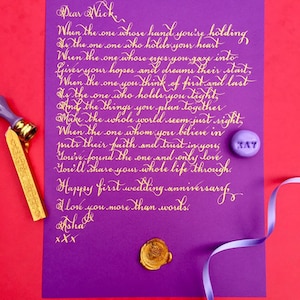 Dear Nick,
When the one whose hand you're holding
Is the one who holds your heart
When the one whose eyes you gaze into
Gives your hopes and dreams their start,
When the one you think of first and last
Is the one who holds you tight,
And the things you plan together
Make the whole world seem just right,
When the one whom you believe in
puts their faith and trust in you;
You've found the one and only love
You'll share your whole life through.
Happy first wedding anniversary,
I love you more than words.
Asha
xxx